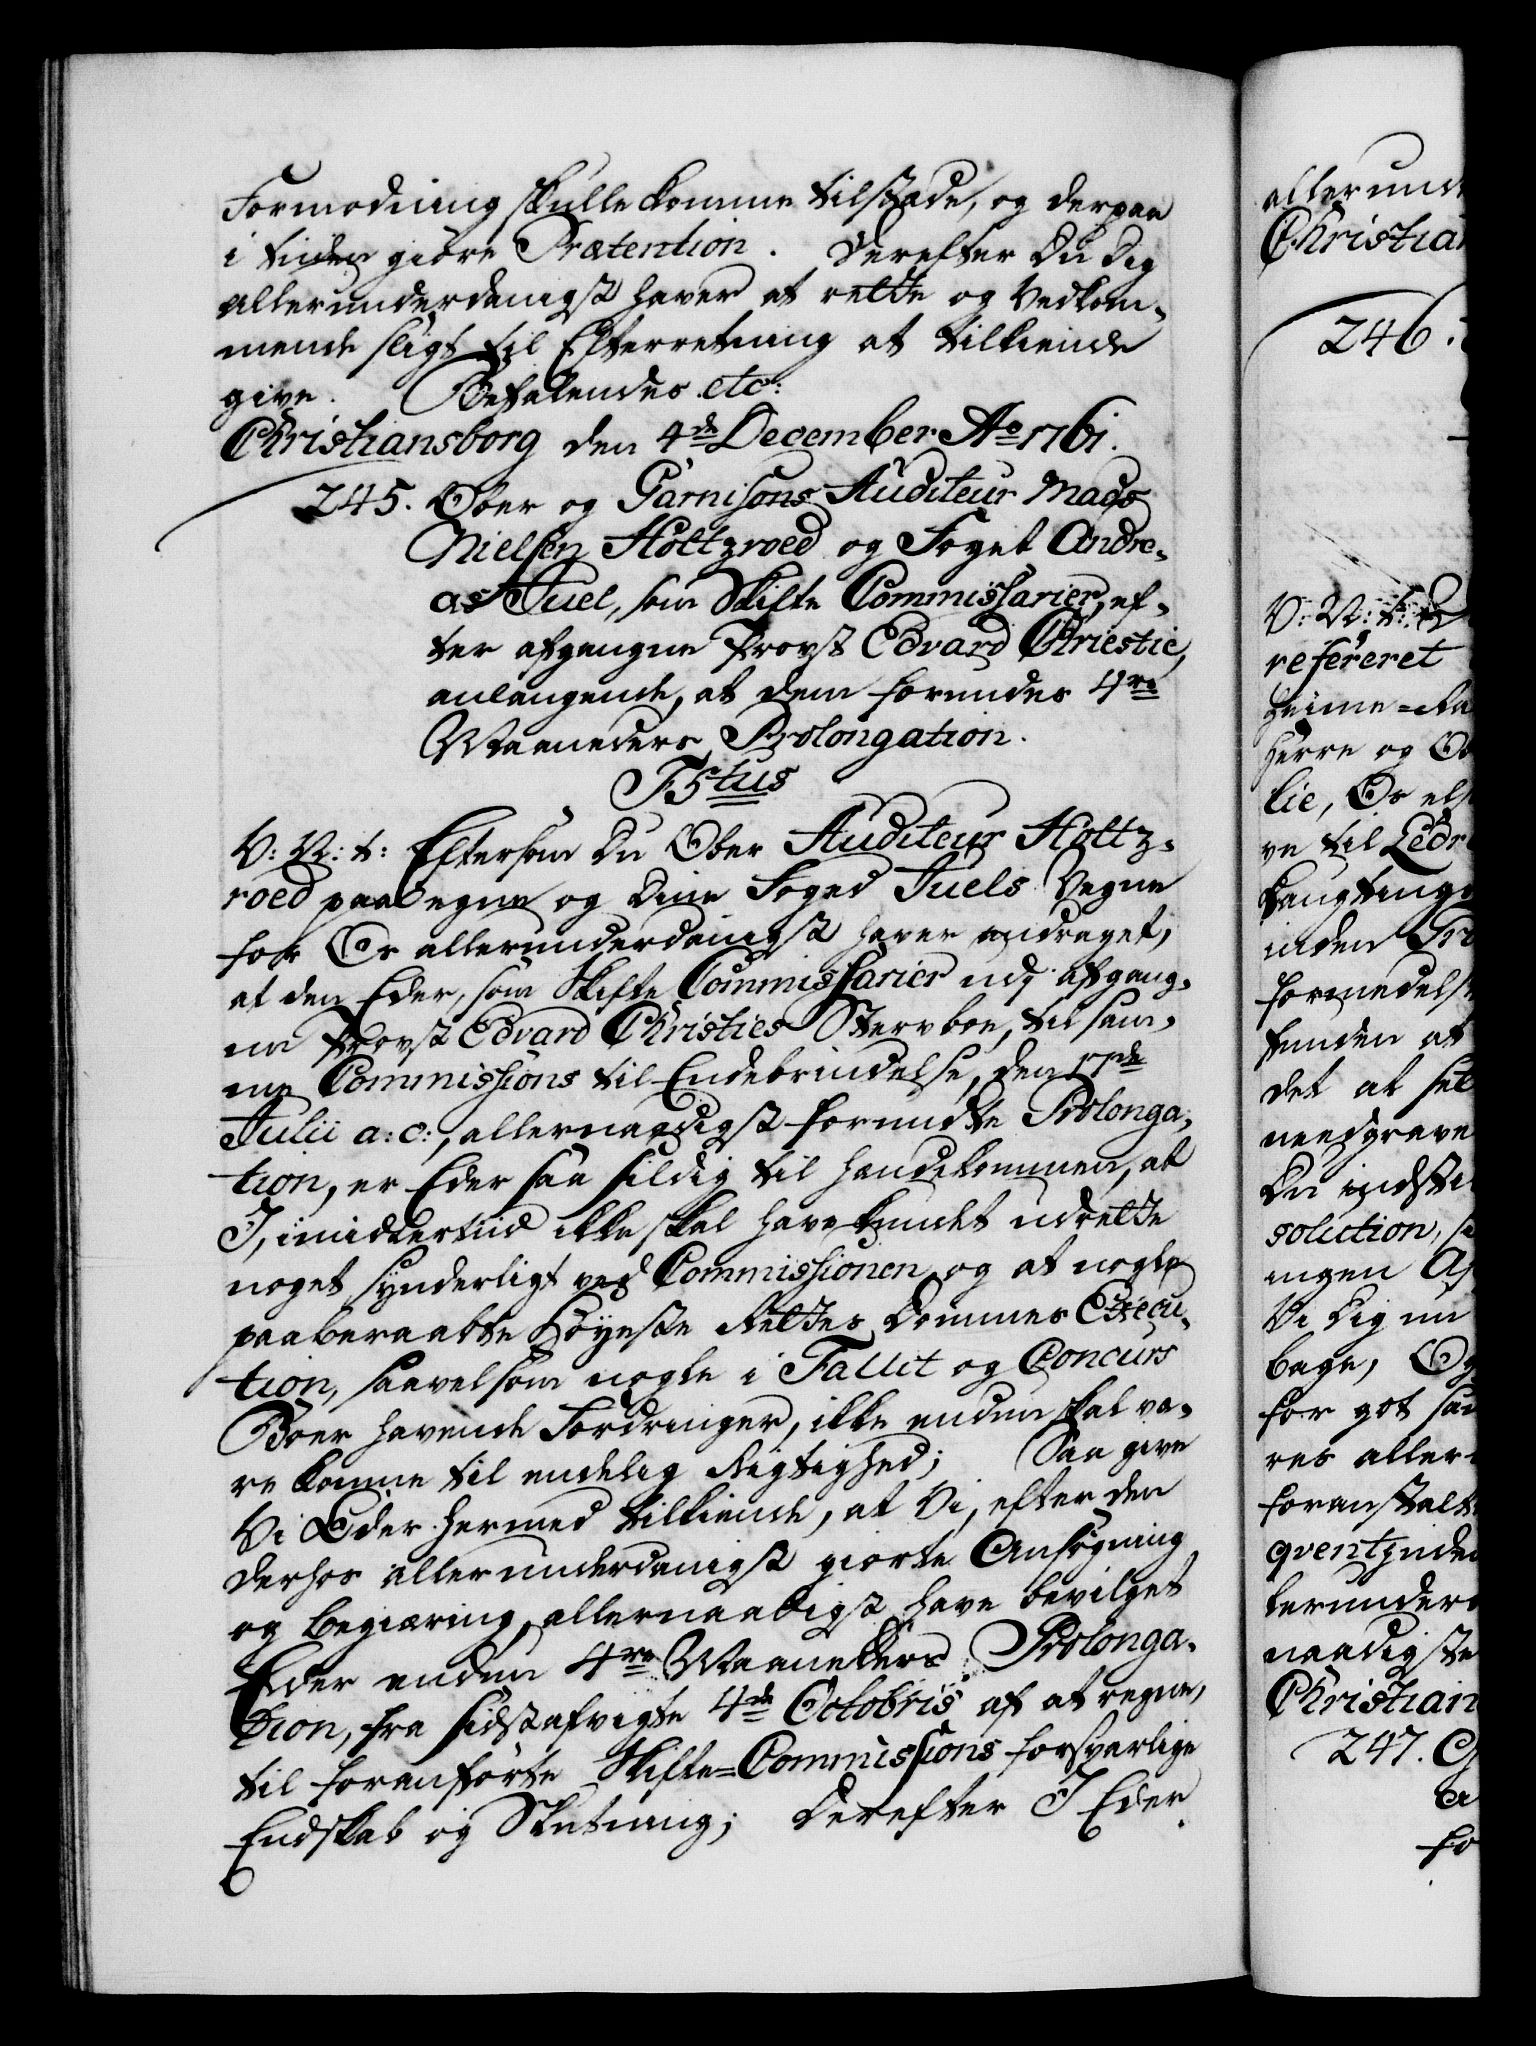 Formodning skulle komme tilstæde, og derpaa
i tiden giöre Prætention. Derefter Du Dig
allerunderdanigst haver at rette og Vedkom-
mende sligt til Efterretning at tilkiende
give. Befalendes etc:
Christiansborg den 4de December Ao 1761.
245. Ober og Garnisons Auditeur Mads
Nielsen Holtzroed og Foget Andre-
as Juel, som Skifte Commissarier, ef-
ter afgangne Provst Edvard Christie,
anlangende, at dem forundes 4re
Maaneders Prolongation.
F5tus
V: V: t: Eftersom Du Ober Auditeur Holtz-
roed paa egne og Din Foged Juels Vegne
for Os allerunderdanigst haver andraget,
at den Eder, som Skifte Commissarier udj afgang-
ne Provst Edvard Christies Stervboe, til sam-
me Commissions til Endebrindelse, den 17de
Julii a: c:, allernaadigst forundte Prolonga-
tion, er Eder saa sildig til hande kommen, at
I, imidlertiid ikke skal have kundet udrette
noget synderligt ved Commissionen, og at nogle
paaberaabte Höyeste Rettes Dommes Execu-
tion, saavelsom nogle i Fallit og Concurs
Boer havende Fordringer, ikke enden skal væ-
re komne til endelig Rigtighed; Saa give
Vi Eder hermed tilkiende, at Vi, efter den
derhos allerunderdanigst giorte Ansögning
og Begiæring, allernaadigst have bevilget
Eder enden 4re Maaneders Prolonga-
tion, fra sidstafvigte 4de Octobris af at regne,
til foranförte Skifte=Commissions forsvarlige
Endskab og Slutning; Derefter I Eder
allerund
Christian
246.
V: V: t:
refereret
Heime=Ra
Herre og Ob
lie, Os els
ve til Ledr
Laugtinge
inden Pro
formedelst
funden at
det at sel
needgrave
Du indstil
solution, s
ingen A
Vi Dig nu
bage, Og
for got saa
res aller-
foranstalt
qventznde
lerunder
naadigste
Christian
247.
a
fo